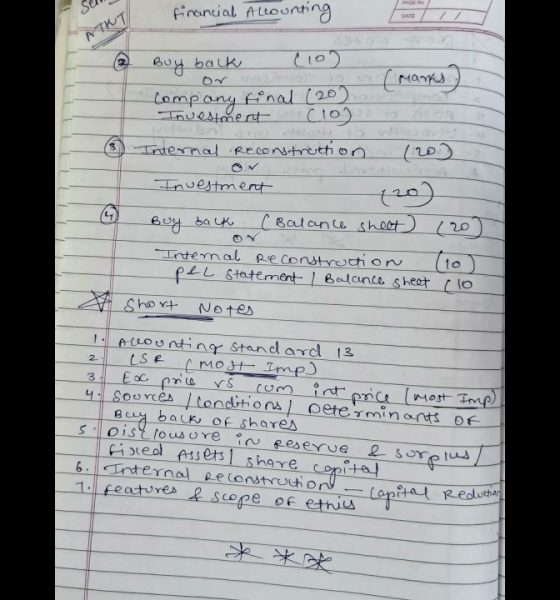 Sem
ATKT
Financial Accounting
PAGE No.
DATE / /
② Buy back (10)
or (Marks)
Company final (20)
Investment (10)
③ Internal Reconstruction (20)
or
Investment (20)
④ Buy back (Balance sheet) (20)
or
Internal Reconstruction (10)
P&L Statement / Balance sheet (10
Short Notes
1. Accounting Standard 13
2 CSR (Most Imp)
3. Ex price vs cum int price (Most Imp)
4. Sources / Conditions / Determinants of
Buy back of shares
5. Disclosure in Reserve & Surplus /
Fixed Assets / share capital
6. Internal Reconstruction – Capital Reduction
7. features & scope of ethics